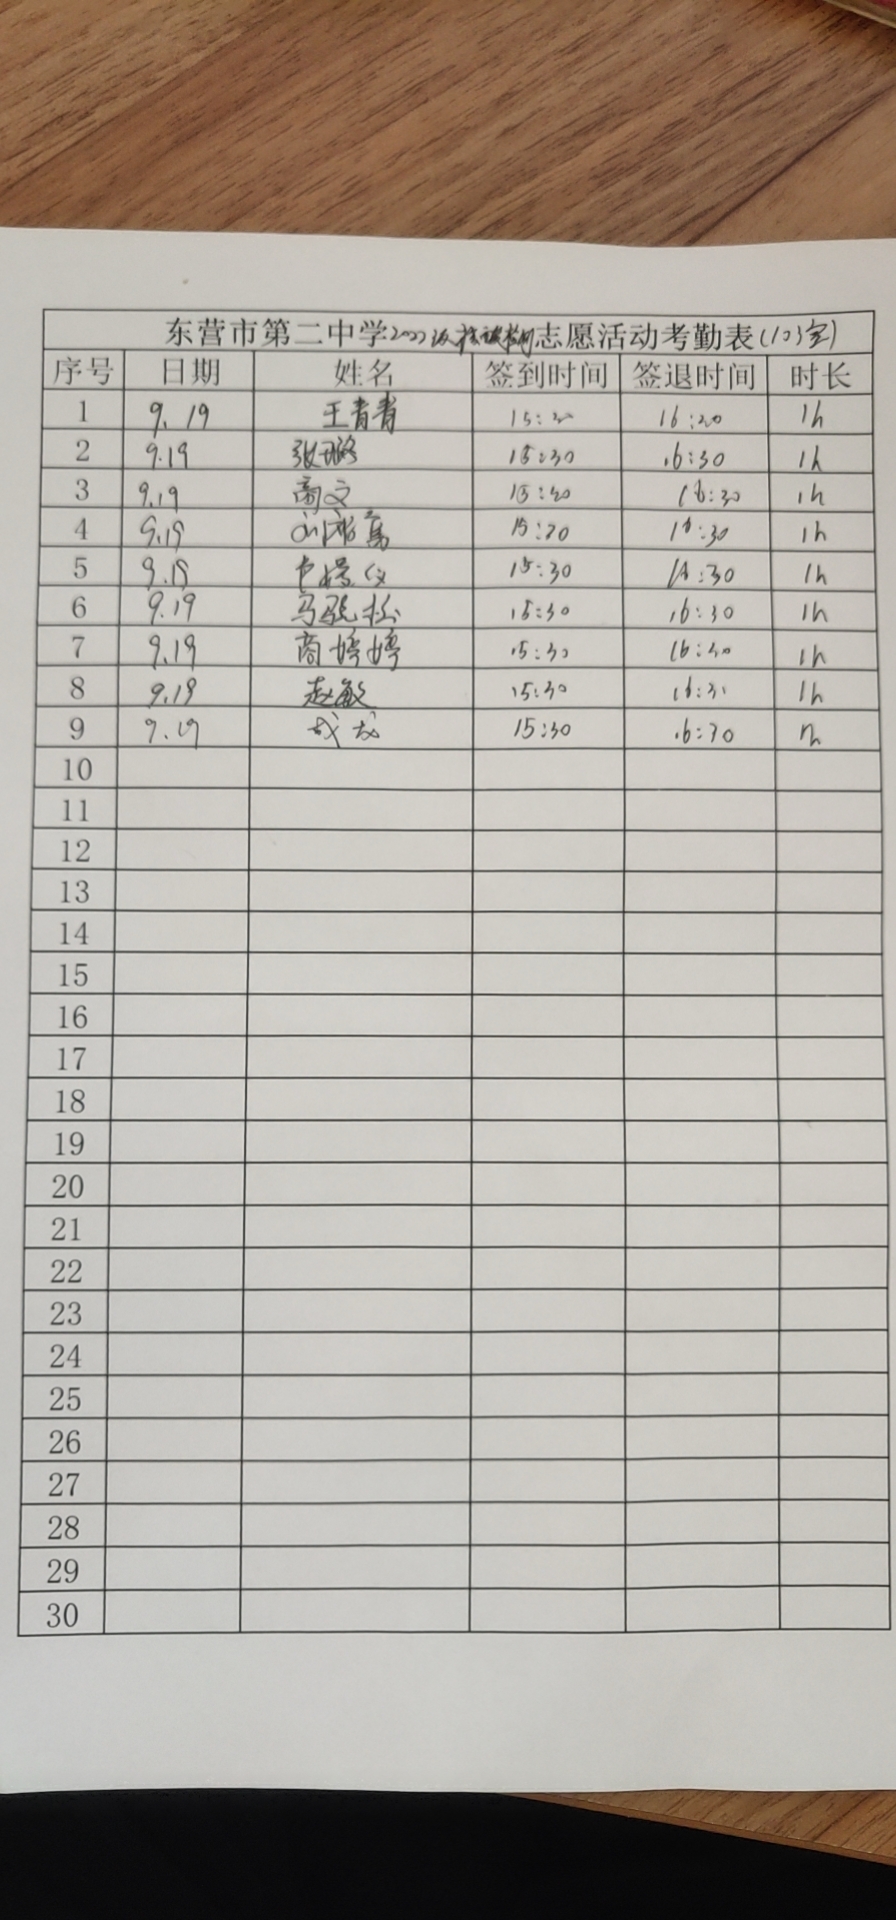 东营市第二中学 志愿活动考勤表
序号 日期 姓名 签到时间 签退时间 时长
1 9.19 王青青 15:30 16:30 1h
2 9.19 张璐 15:30 16:30 1h
3 9.19 商文 15:30 16:30 1h
4 9.19 15:30 16:30 1h
5 9.19 15:30 16:30 1h
6 9.19 15:30 16:30 1h
7 9.19 商婷婷 15:30 16:30 1h
8 9.19 赵敏 15:30 16:31 1h
9 9.19 成龙 15:30 16:30 1h
10
11
12
13
14
15
16
17
18
19
20
21
22
23
24
25
26
27
28
29
30